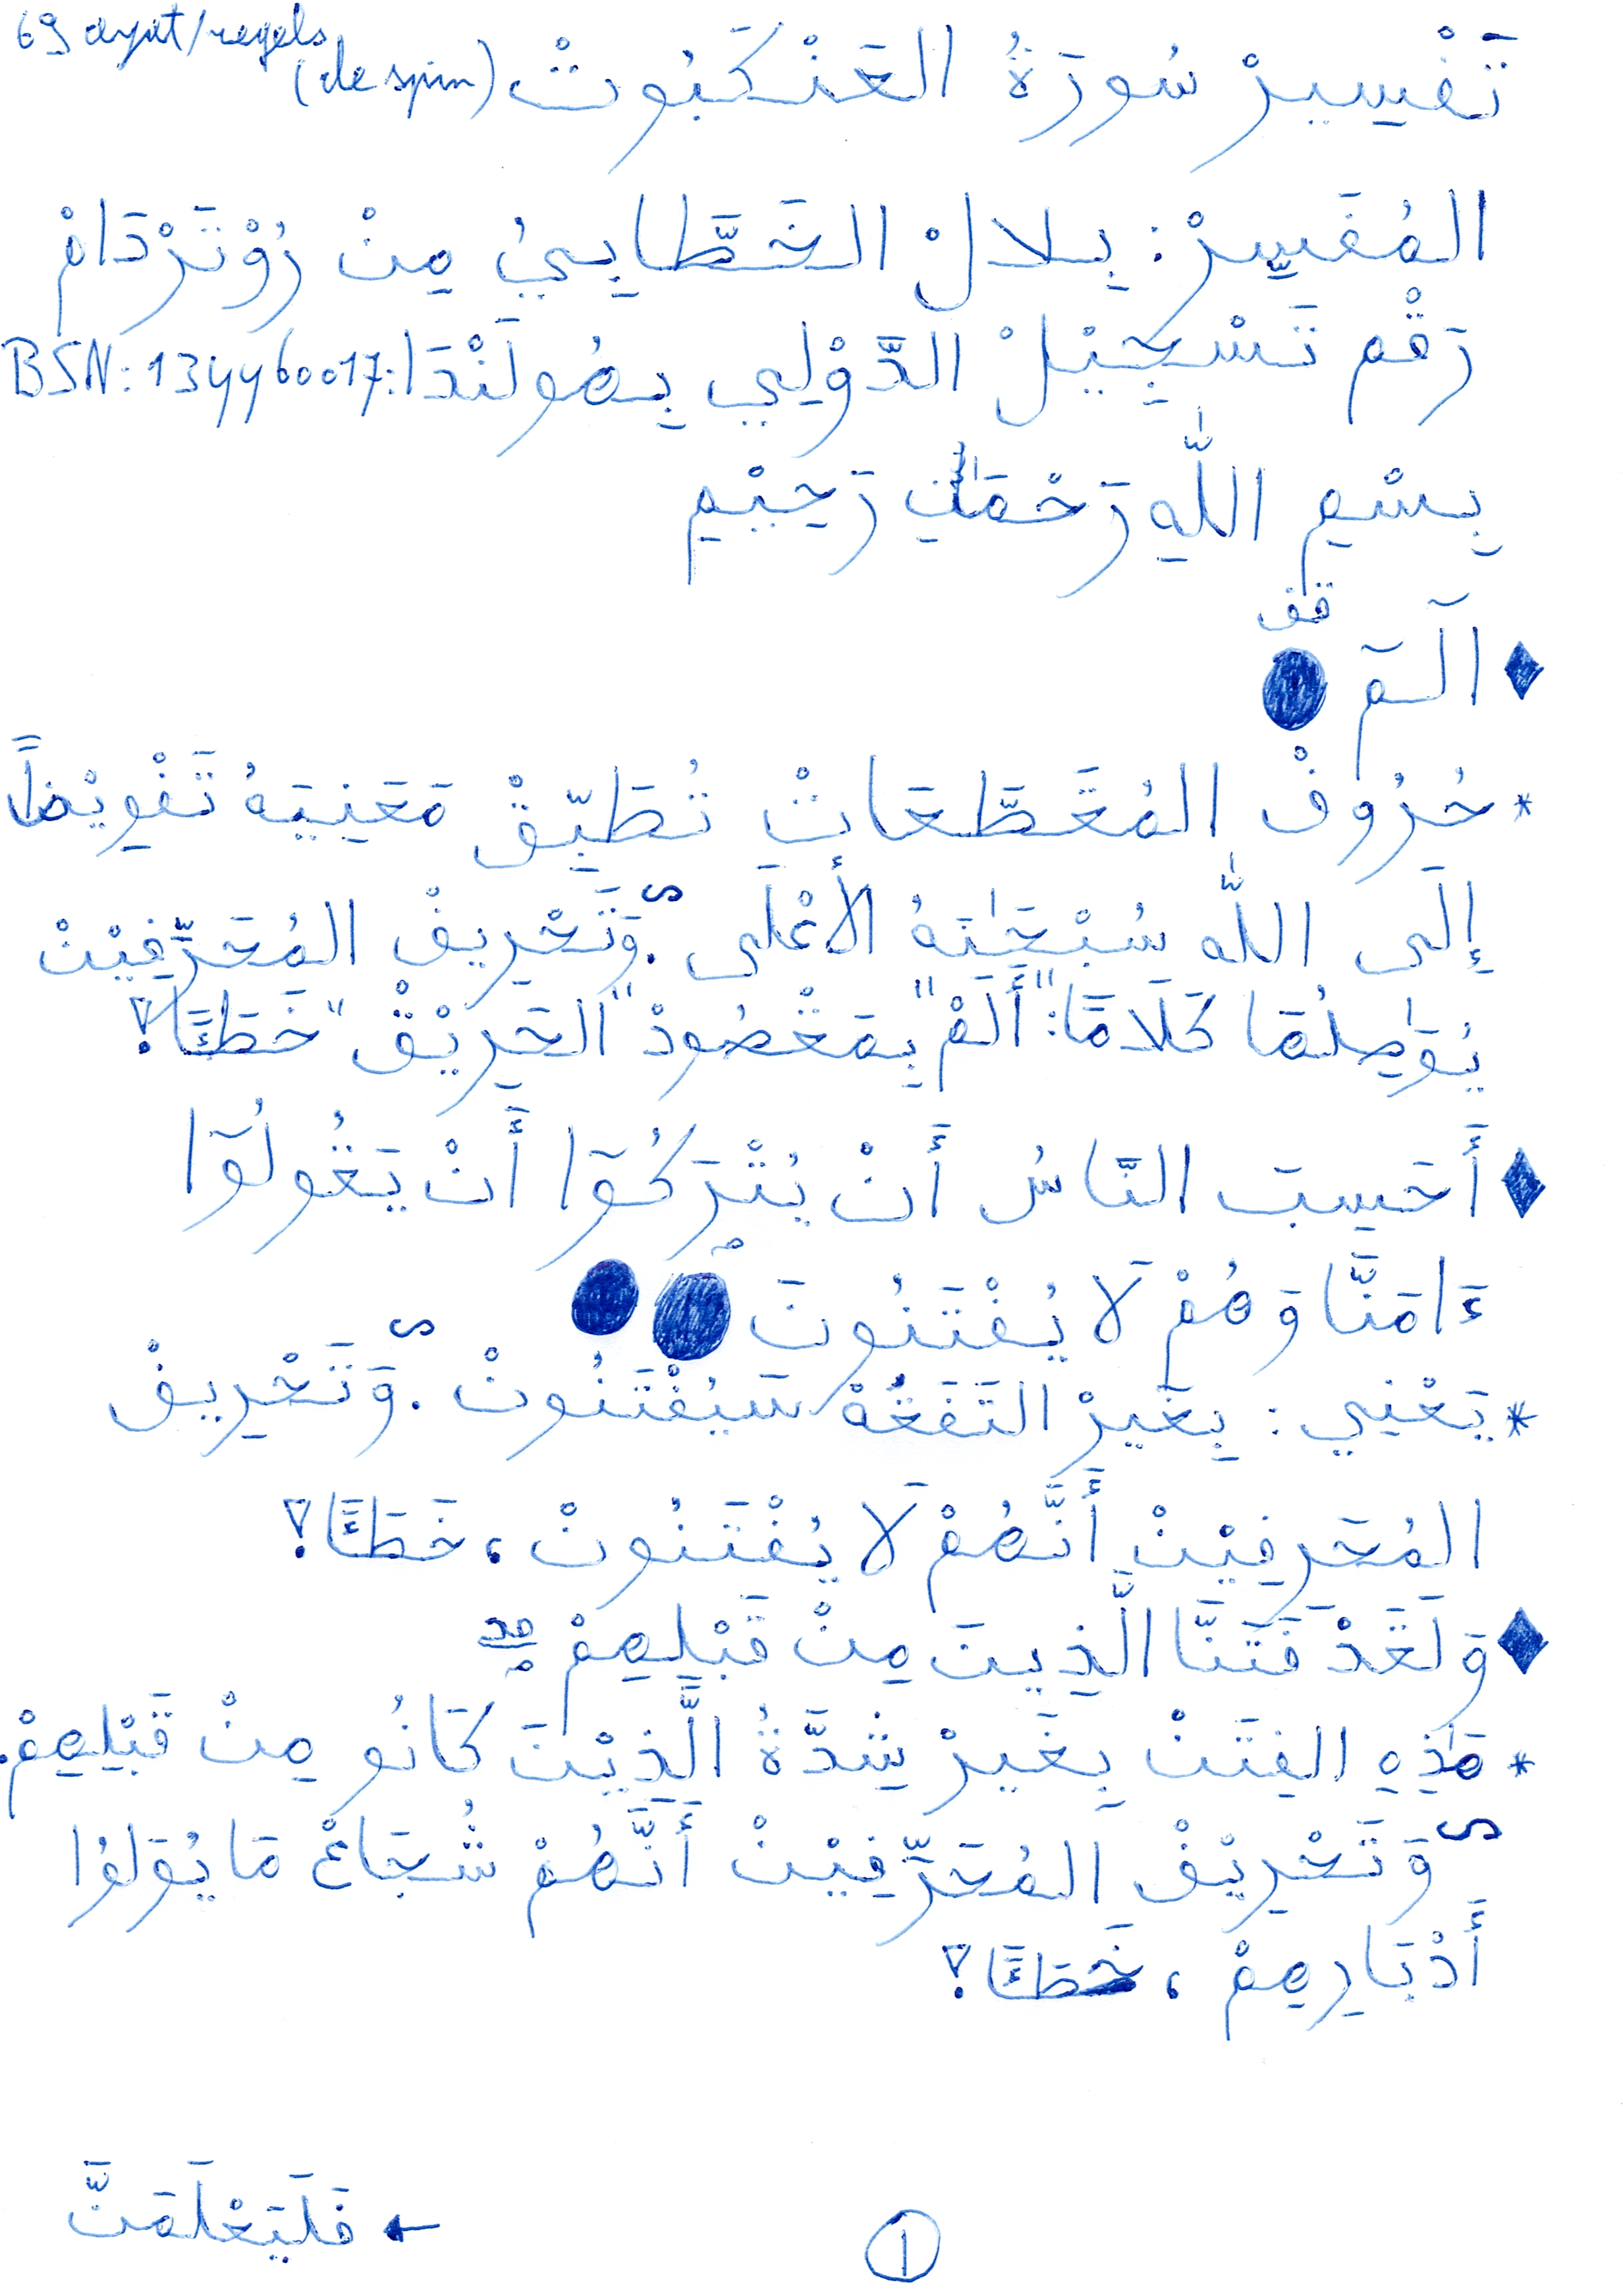 69 ayat/regels
تَفْسِيرْ سُورَةُ العَنْكَبُوتْ (de spin)
المُفَسِّرْ: بِلَالْ الخَطَّابِيُ مِنْ رُوْتَرْدَامْ
رَقْم تَسْجِيْلْ الدَّوْلِي بِهُولَنْدَا: BSN: 134460017
بِسْمِ اللّٰهِ رَحْمَٰنِ رَحِيْمِ
الٓمٓ
قف
* حُرُوفْ المُقَطَّعَاتْ تُطَبِّقْ مَعَنِيَهُ تَفْوِيْضاً
إِلَى اللّٰه سُبْحَٰنَهُ الأَعْلَى. وَّتَحْرِيفْ المُحَرِّفِيْنْ
يُوَٰصِلُهَا كَلَامًا: "أَلَمْ" بِمَقْصُودْ "الحَرِيْقْ" خَطَئًا؟
أَحَسِبَ النَّاسُ أَنْ يُتْرَكُوٓا أَنْ يَقُولُوٓا
ءَامَنَّا وَهُمْ لَا يُفْتَنُونَ
* يَعْنِي: بِغَيرْ التَفَقُّهْ سَيُفْتَنُونْ. وَّتَحْرِيفْ
المُحَرِفِيْنْ أَنَّهُمْ لَا يُفْتَنُونْ، خَطَئًا؟
وَلَقَدْ فَتَنَّا الَّذِينَ مِنْ قَبْلِهِمْ
* هَٰذِهِ الفِتَنْ بِغَيرْ شِدَّةُ الَّذِيْنَ كَانُو مِنْ قَبْلِهِمْ.
وَّتَحْرِيْفْ المُحَرِّفِيْنْ أَنَّهُمْ شُجَاعْ مَا يُوَلوُا
أَدْبَارِهِمْ، خَطَئًا؟
← فَلَيَعْلَمَنَّ
1